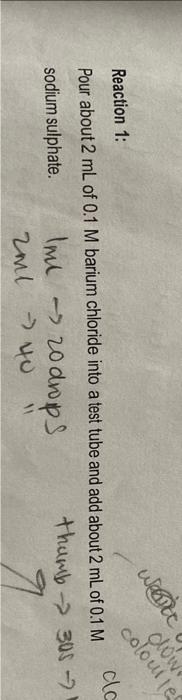 Reaction 1:
Pour about 2 mL of 0.1 M barium chloride into a test tube and add about 2 mL of 0.1 M
sodium sulphate.
1ml → 20 drops
2ml → 40 "
thumb → 30s →
clo
down
colourle